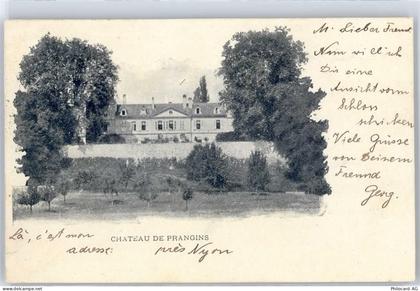 M. Lieber Freund
Nun will ich
Dir eine
Ansicht
vom
Schloss
schicken
Viele Grüsse
von Deinem
Freund
Georg.
Là, c'est mon
adresse:
CHATEAU DE PRANGINS
près Nyon
www.philarchive.ch AG